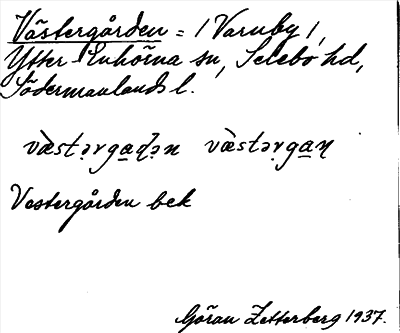 Västergården = / Varnby /,
Ytter-Enhörna sn, Selebo hd,
Södermanlands l.
Vestergården bek
Göran Zetterberg 1937.